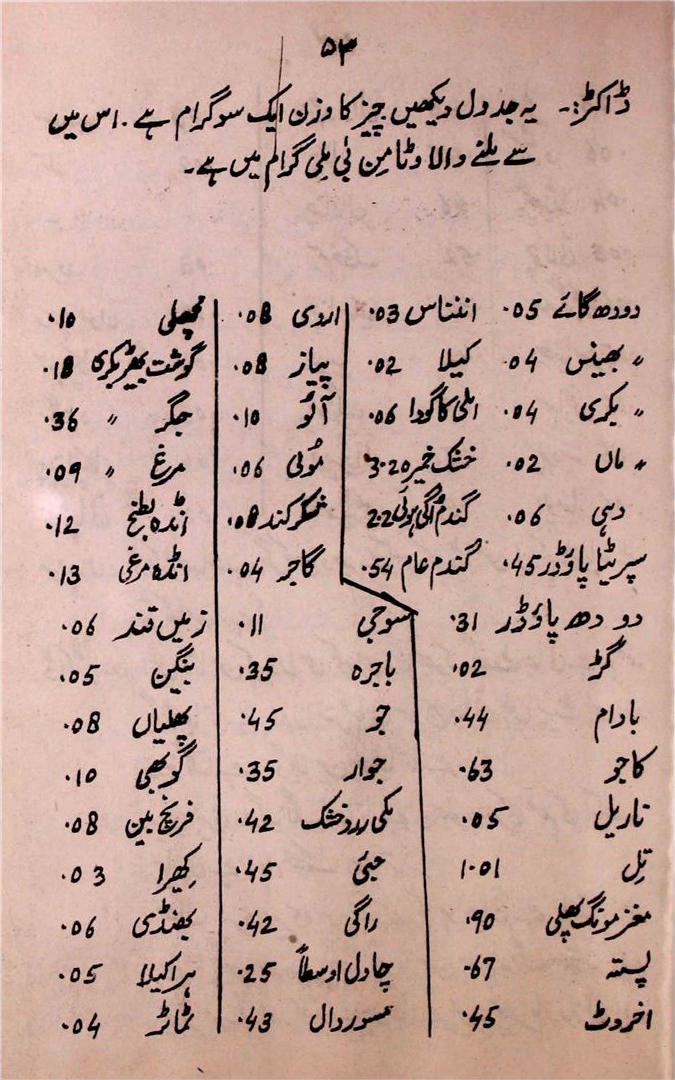 ۵۳
ڈاکٹر:۔ یہ جدول دیکھیں چیز کا وزن ایک سو گرام ہے۔ اس میں
سے ملنے والا وٹامن بی ملی گرام میں ہے۔
دودھ گائے ۰05 انناس ۰03 اروی ۰08 مچھلی ۰10
〃 بھینس ۰04 کیلا ۰02 پیاز ۰08 گوشت بھیڑ بکری ۰18
〃 بکری ۰04 املی کا گودا ۰06 آلو ۰10 جگر 〃 ۰36
〃 ماں ۰02 خشک خمیرہ 3۰20 مُولی ۰06 مرغ 〃 ۰09
دہی ۰06 گندم اگی ہوئی 2۰2 شکر کند ۰08 انڈہ بطخ ۰12
سپریٹا پاؤڈر ۰45 گندم عام ۰54 گاجر ۰04 انڈہ مرغی ۰13
دودھ پاؤڈر ۰31 سوجی ۰11 زمیں قند ۰06
گڑ ۰02 باجرہ ۰35 بنگن ۰05
بادام ۰44 جَو ۰45 پھلیاں ۰08
کاجو ۰63 جوار ۰35 گوبھی ۰10
ناریل ۰05 مکی زرد خشک ۰42 فرنچ بین ۰08
تِل 1۰01 جئی ۰45 کھیرا ۰03
مغز مونگ پھلی ۰90 راگی ۰42 بھنڈی ۰06
پستہ ۰67 چاول اوسطاً ۰25 ہرا کیلا ۰05
اخروٹ ۰45 مسور دال ۰43 ٹماٹر ۰04